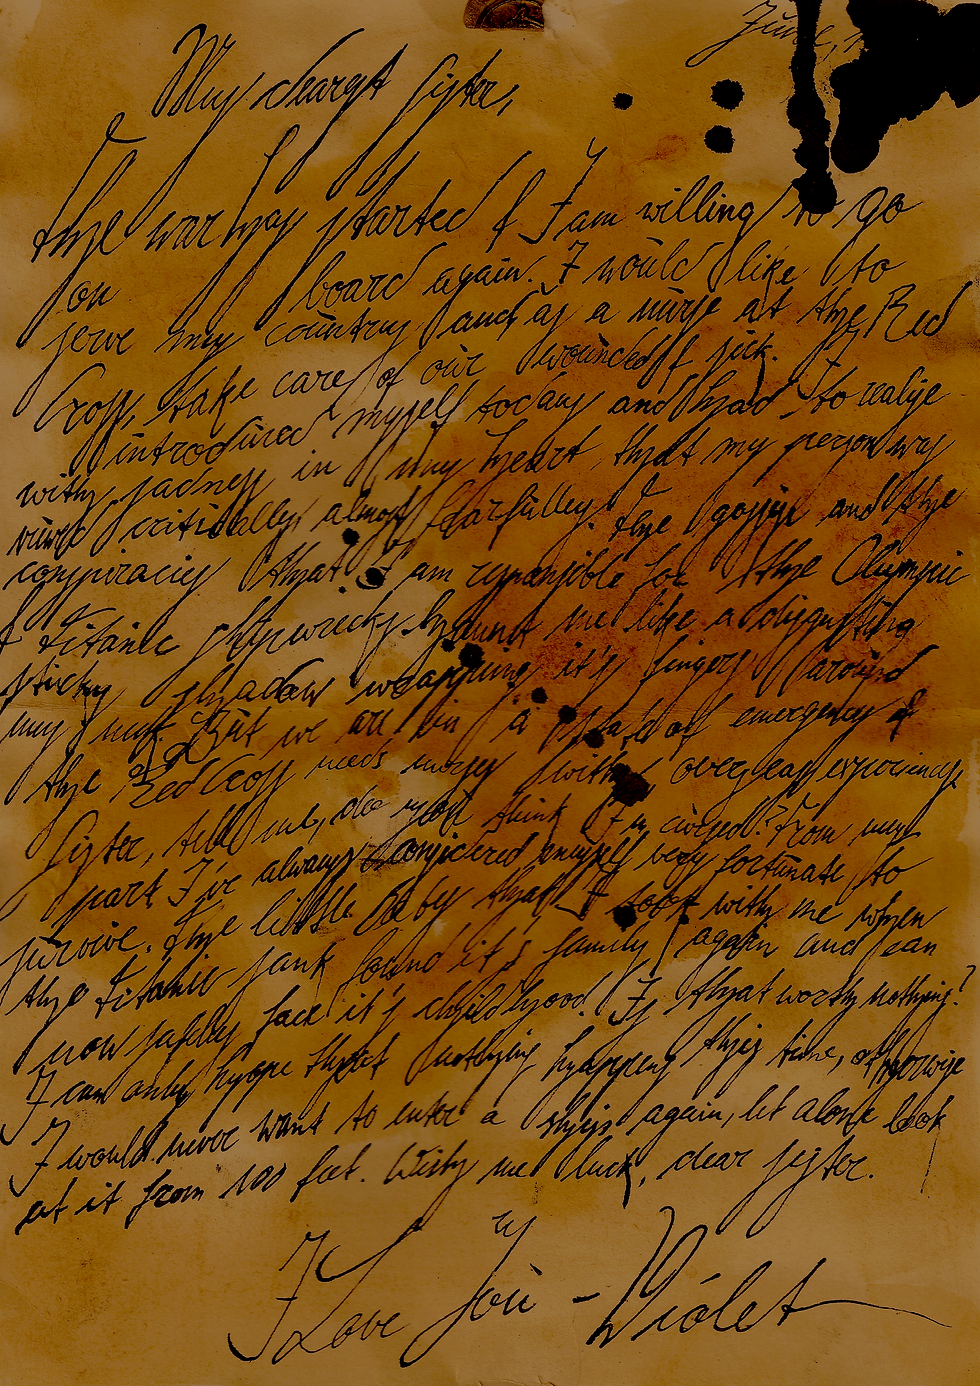 June, 1
My dearest sister,
The war has started & I am willing to go
on board again. I would like to
serve my country and, as a nurse at the Red
Cross, take care of our wounded & sick. I
introduced myself today and had to realize
with sadness in my heart that my person was
viewed critically, almost fearfully. The gossip and the
conspiracies that I am responsible for the Olympic
& Titanic shipwrecks haunt me like a disgusting
sticky shadow wrapping it's fingers around
my neck. But we are in a state of emergency &
the Red Cross needs nurses with overseas experience.
Sister, tell me, do you think I'm cursed? From my
part I've always considered myself very fortunate to
survive. The little baby that I took with me when
the Titanic sank found it's family again and can
now safely face it's childhood. Is that worth nothing?
I can only hope that nothing happens this time, otherwise
I would never want to enter a ship again, let alone look
at it from 100 feet. Wish me luck, dear sister.
I Love You - Violet